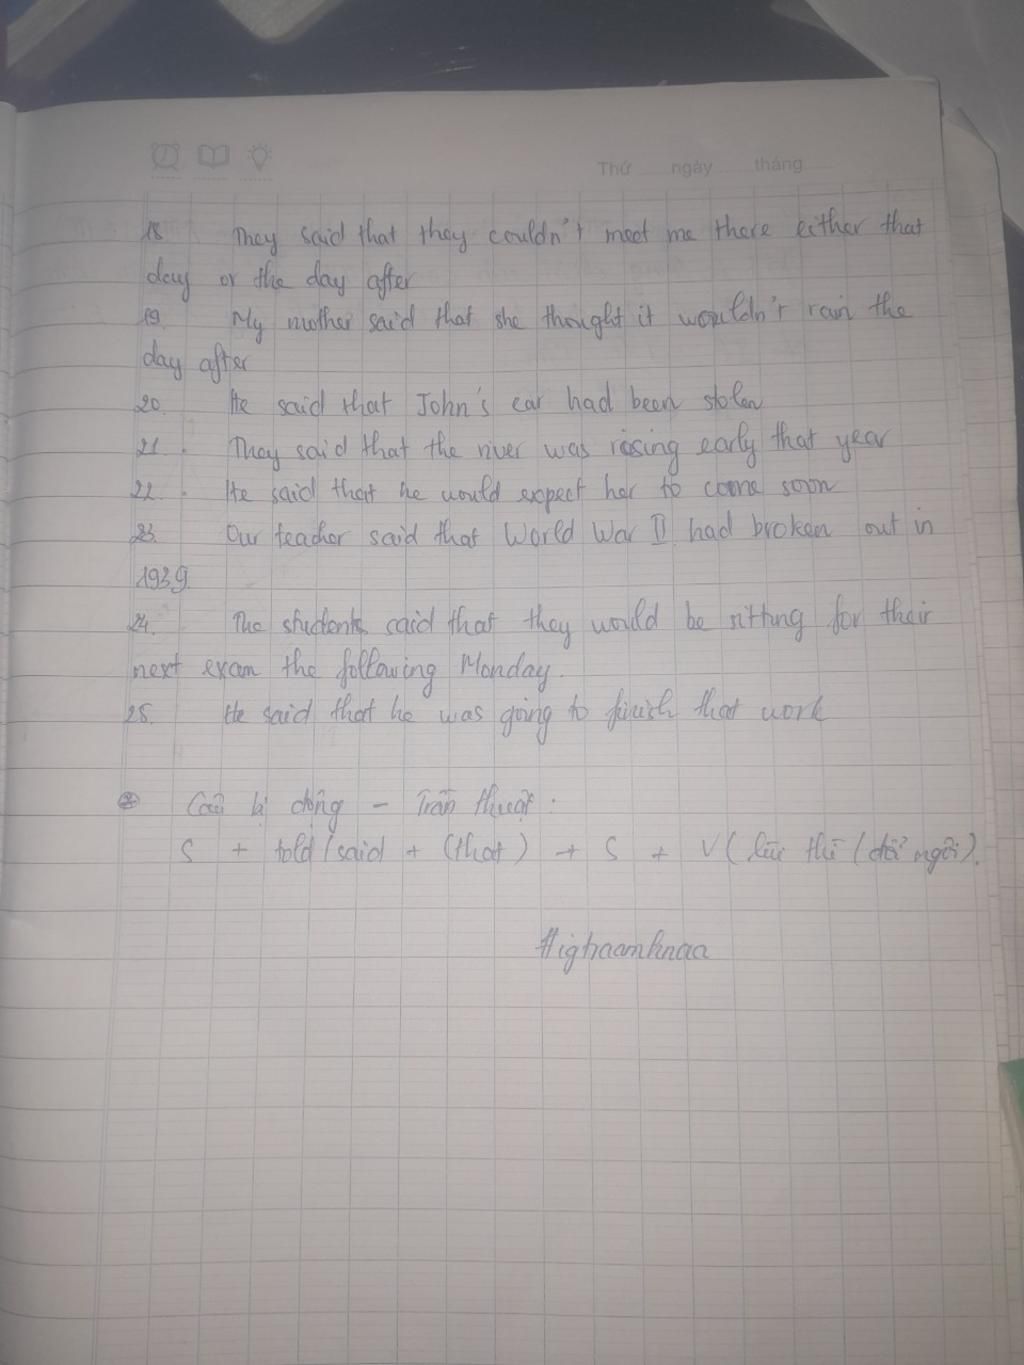 Thứ ngày tháng
18. They said that they couldn't meet me there either that
day or the day after
19. My mother said that she thought it wouldn't rain the
day after
20. He said that John's car had been stolen
21. They said that the river was rising early that year
22. He said that he would expect her to come soon
23. Our teacher said that World War II had broken out in
1939.
24. The students said that they would be sitting for their
next exam the following Monday.
25. He said that he was going to finish that work
Câu bị động - Trần thuật:
S + told/said + (that) + S + V (lùi thì / đổi ngôi).